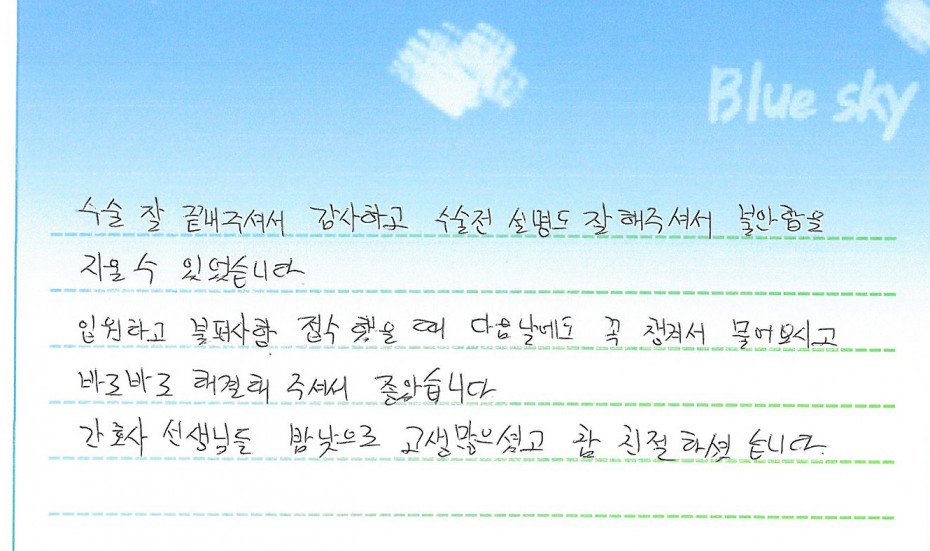 Blue sky
수술 잘 끝내주셔서 감사하고 수술전 설명도 잘해주셔서 불안함을
지울 수 있었습니다.
입원하고 불편사항 접수 했을 때 다음날에도 꼭 챙겨서 물어보시고
바로바로 해결해 주셔서 좋았습니다.
간호사 선생님들 밤낮으로 고생많으셨고 참 친절하셨습니다.